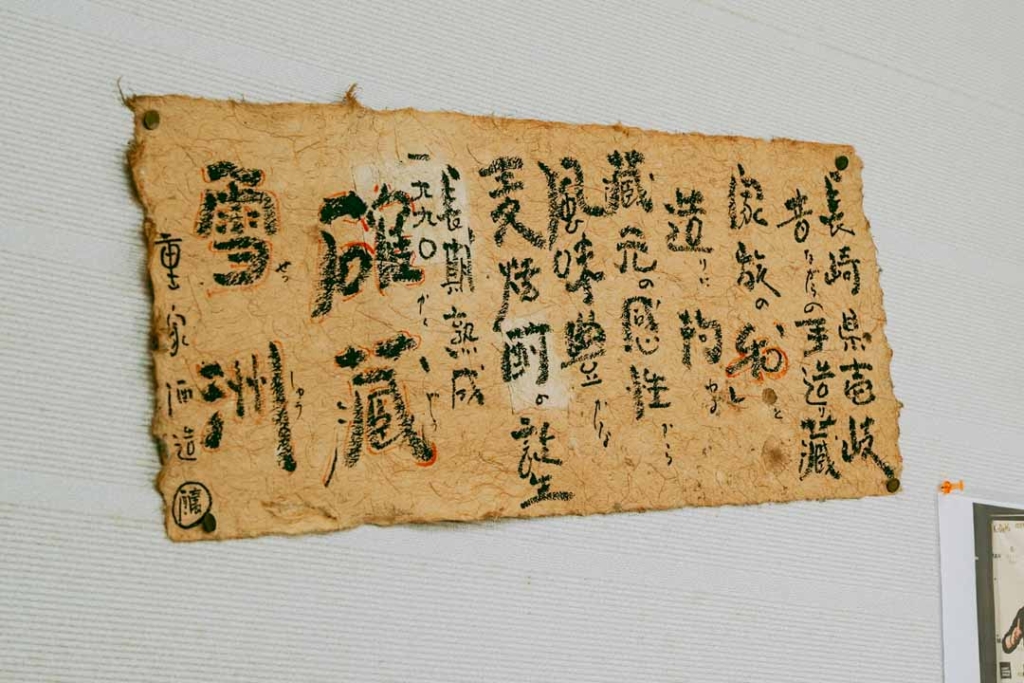 長崎県壱岐
昔ながらの手造り蔵
家族の和と
造りに拘る
蔵元の感性から
風味豊かな
麦焼酎の誕生
長期熟成
一九九〇
確蔵
雪洲
せっ
しゅう
重家酒造